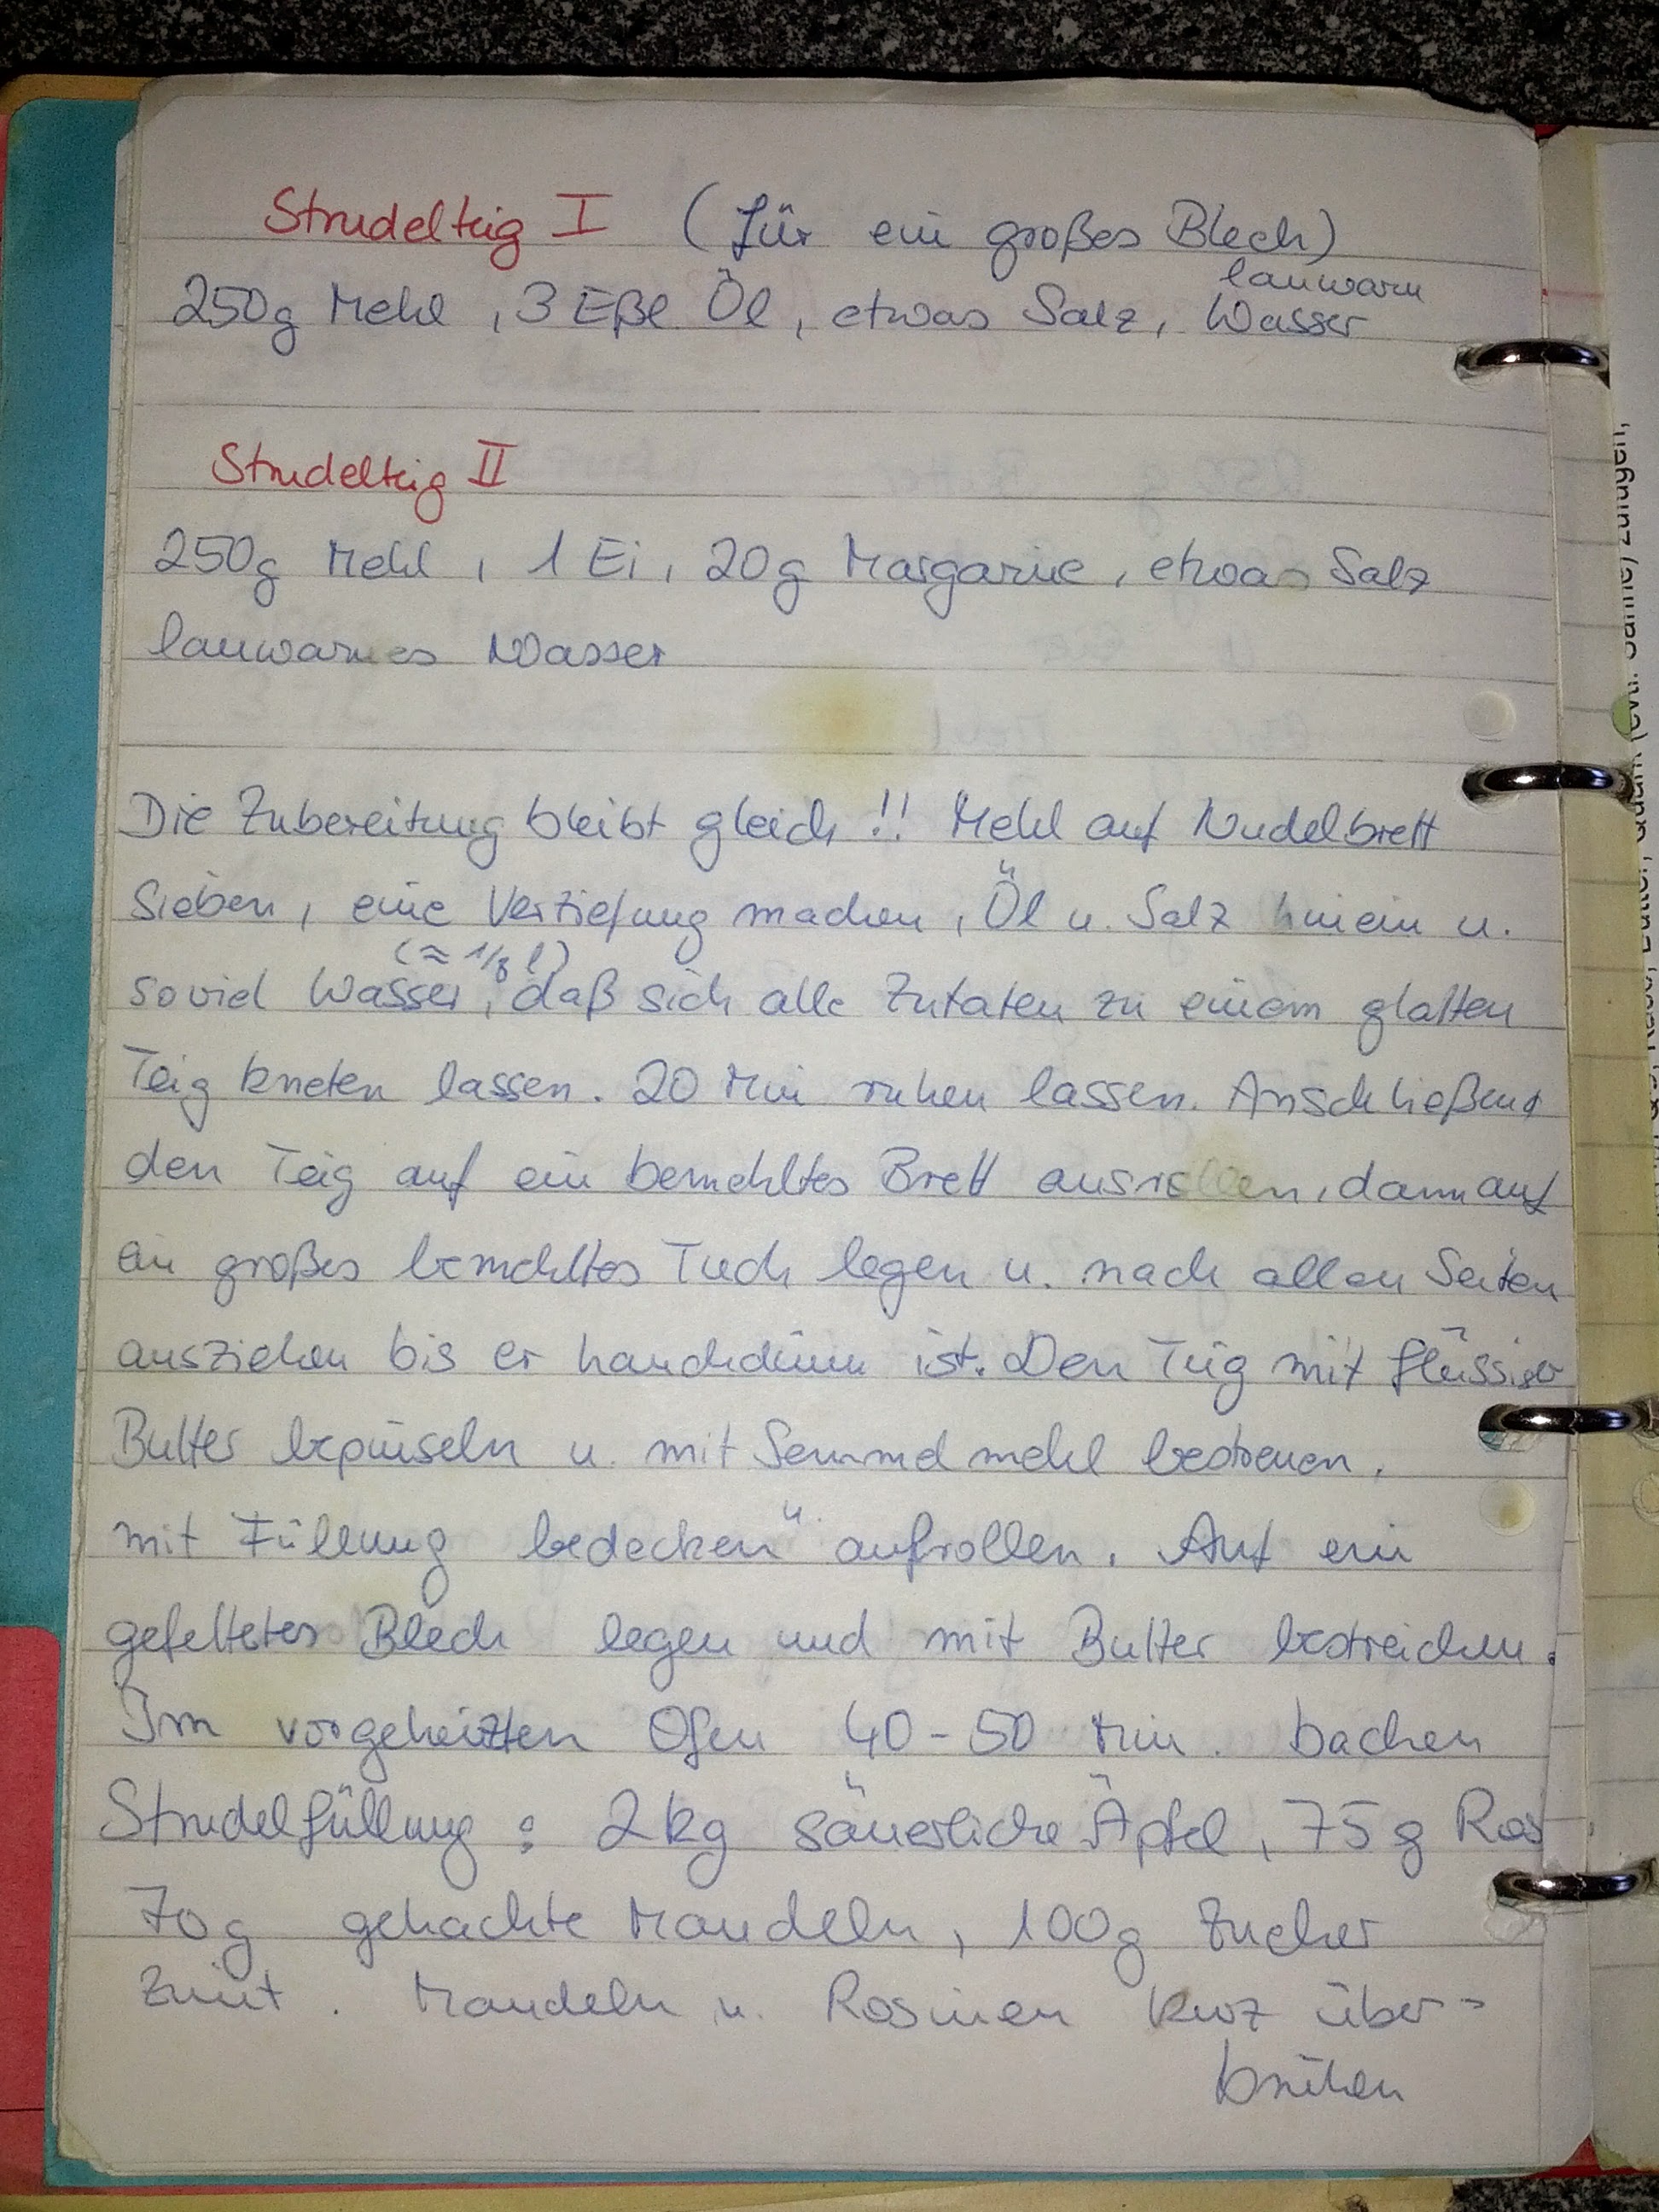 Strudelteig I (für ein großes Blech)
lauwarm
250g Mehl, 3 Eßl Öl, etwas Salz, Wasser
Strudelteig II
250g Mehl, 1 Ei, 20g Margarine, etwas Salz
lauwarmes Wasser
Die Zubereitung bleibt gleich!! Mehl auf Nudelbrett
sieben, eine Vertiefung machen, Öl u. Salz hinein u.
(≈ 1/8 l)
soviel Wasser, daß sich alle Zutaten zu einem glatten
Teig kneten lassen. 20 Min ruhen lassen. Anschließend
den Teig auf ein bemehltes Brett ausrollen, dann auf
ein großes bemehltes Tuch legen u. nach allen Seiten
ausziehen bis er hauchdünn ist. Den Teig mit flüssiger
Butter bepinseln u. mit Semmelmehl bestreuen.
mit Füllung bedecken u. aufrollen. Auf ein
gefettetes Blech legen und mit Butter bestreichen.
Im vorgeheizten Ofen 40-50 Min. backen
Strudelfüllung: 2kg säuerliche Äpfel, 75g Ros
70g gehackte Mandeln, 100g Zucker
Zimt. Mandeln u. Rosinen kurz über-
brühen
zufügen,